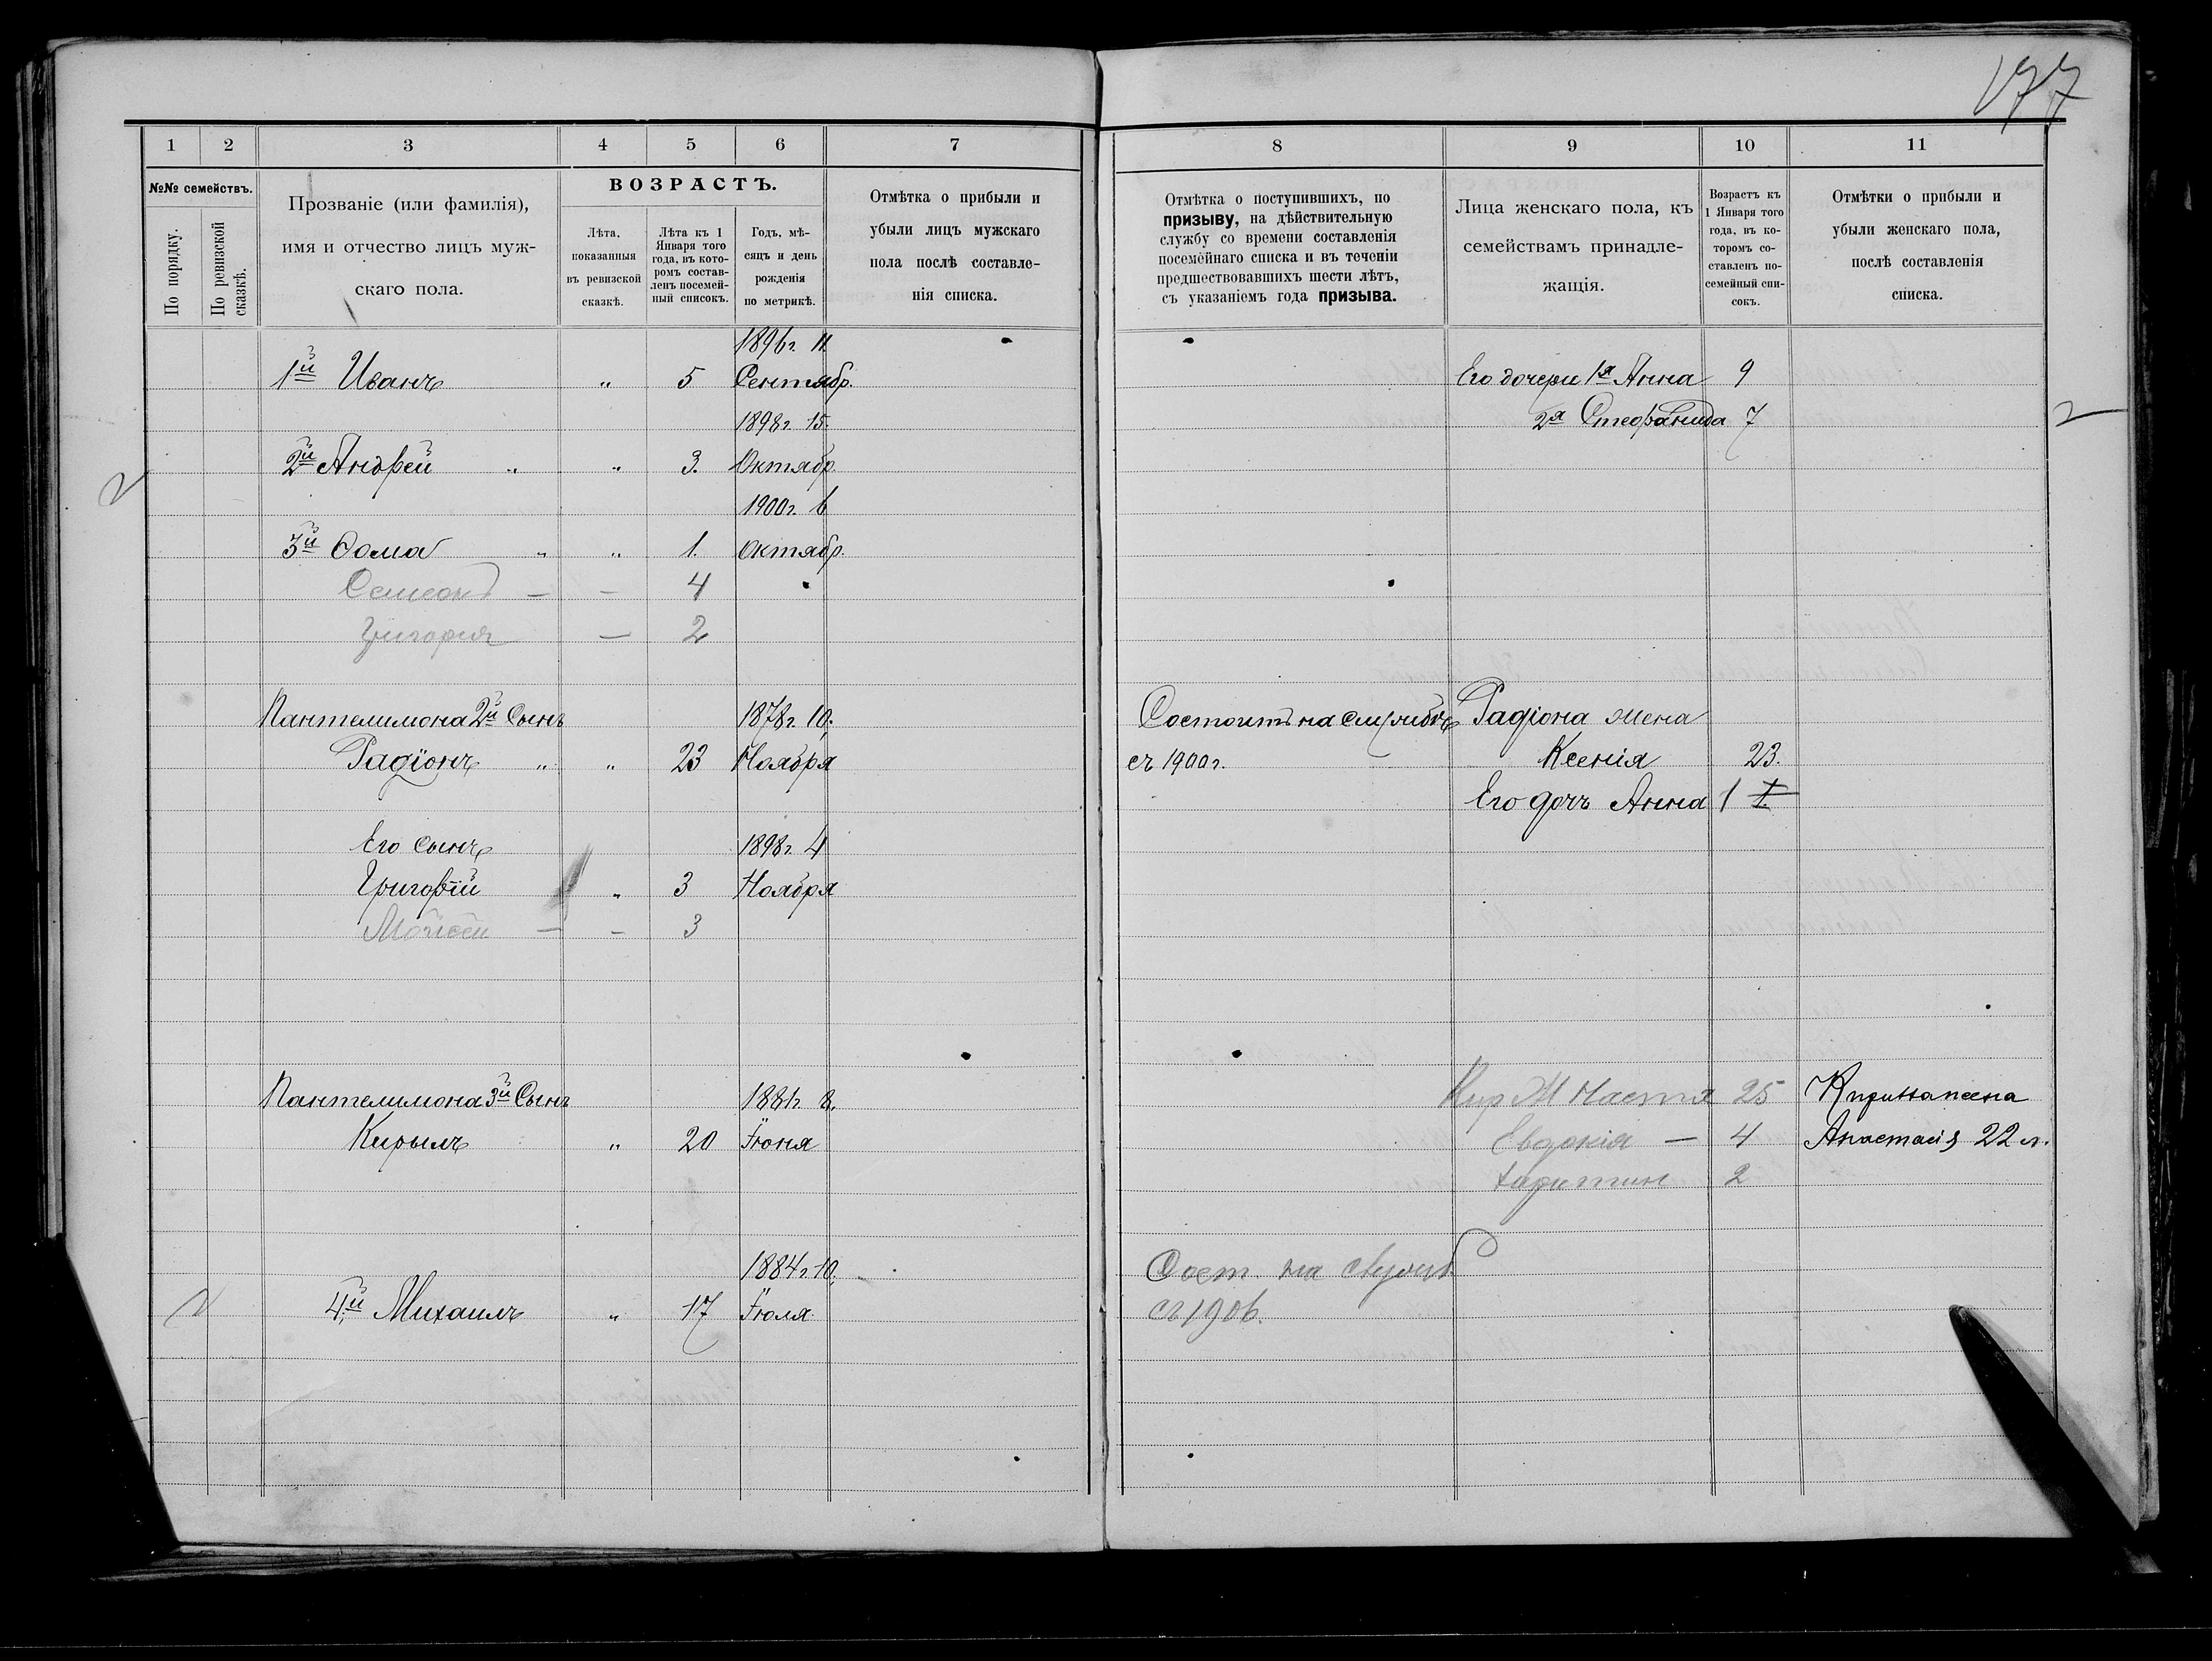 177
1 2 3 4 5 6 7
№№ семействъ.
По порядку.
По ревизской сказкѣ.
Прозваніе (или фамилія),
имя и отчество лицъ муж-
скаго пола.
ВОЗРАСТЪ.
Лѣта,
показанныя
въ ревизской
сказкѣ.
Лѣта къ 1
Января того
года, въ кото-
ромъ состав-
ленъ посемей-
ный списокъ.
Годъ, мѣ-
сяцъ и день
рожденія
по метрикѣ.
Отмѣтка о прибыли и
убыли лицъ мужскаго
пола послѣ составле-
нія списка.
1896 г. 11.
1й Иванъ „ 5 Сентябр.
1898 г. 15.
2й Андрей „ „ 3. Октябр.
1900 г. 6
3й Ѳома „ „ 1. Октябр.
Семеонъ — — 4
Григория — 2
Пантелимона 2й Сынъ 1878 г. 10.
Радіонъ „ „ 23 Ноября
Его сынъ 1898 г. 4
Григорій „ 3 Ноября
Моисей — — 3
Пантелимона 3й Сынъ 1881 г. 8.
Кирылъ „ 20 Іюня
1884 г. 10.
4й Михаилъ „ 17 Іюля
8 9 10 11
Отмѣтка о поступившихъ, по
призыву, на дѣйствительную
службу со времени составленія
посемейнаго списка и въ теченіи
предшествовавшихъ шести лѣтъ,
съ указаніемъ года призыва.
Лица женскаго пола, къ
семействамъ принадле-
жащія.
Возрастъ къ
1 Января того
года, въ ко-
торомъ со-
ставленъ по-
семейный спи-
сокъ.
Отмѣтки о прибыли и
убыли женскаго пола,
послѣ составленія
списка.
Его дочери 1я Анна 9
2я Стефанида 7
Состоитъ на службѣ Радіона жена
съ 1900 г. Ксенія 23.
Его дочь Анна 1
Кир Ж Настя 25
Евдокія — 4 Анастасія 22 л.
Харитин 2
Сост. на службѣ
съ 1906.